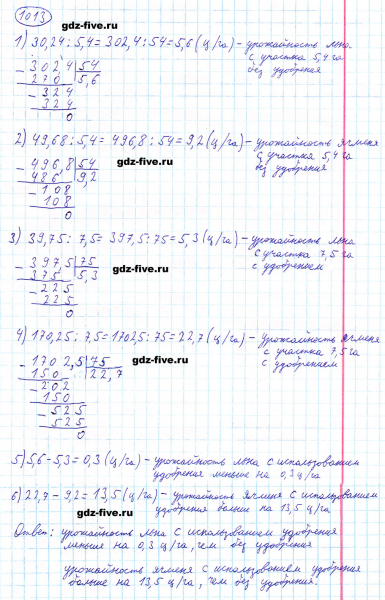 1013
gdz-five.ru
1) 30,24 : 5,4 = 302,4 : 54 = 5,6 (ц/га) - урожайность льна
с участка 5,4 га
без удобрения
302,4 | 54
270 | 5,6
324
324
0
gdz-five.ru
2) 49,68 : 5,4 = 496,8 : 54 = 9,2 (ц/га) - урожайность ячменя
с участка 5,4 га
без удобрения
496,8 | 54
486 | 9,2
108
108
0
gdz-five.ru
3) 39,75 : 7,5 = 397,5 : 75 = 5,3 (ц/га) - урожайность льна
с участка 7,5 га
с удобрением
397,5 | 75
375 | 5,3
225
225
0
gdz-five.ru
4) 170,25 : 7,5 = 1702,5 : 75 = 22,7 (ц/га) - урожайность ячменя
с участка 7,5 га
с удобрением
1702,5 | 75
150 | 22,7
202
150
525
525
0
gdz-five.ru
5) 5,6 - 5,3 = 0,3 (ц/га) - урожайность льна с использованием
удобрения меньше на 0,3 ц/га
6) 22,7 - 9,2 = 13,5 (ц/га) - урожайность ячменя с использованием
удобрения больше на 13,5 ц/га
gdz-five.ru
Ответ: урожайность льна с использованием удобрения
меньше на 0,3 ц/га, чем без удобрения
урожайность ячменя с использованием удобрения
больше на 13,5 ц/га, чем без удобрения.
gdz-five.ru